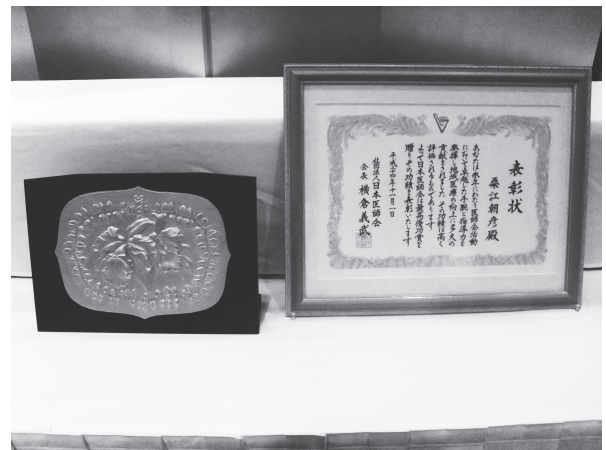 表彰状
桑江朝彦殿
あなたは永年にわたり医師会活動
において卓越した手腕と指導力を
発揮し地域医療の向上に多大の
貢献をされました その功績は高く
評価されるものであります
よって日本医師会は最高優功賞を
贈りその功績を表彰いたします
平成二十四年十一月一日
社団法人日本医師会
会長 横倉義武